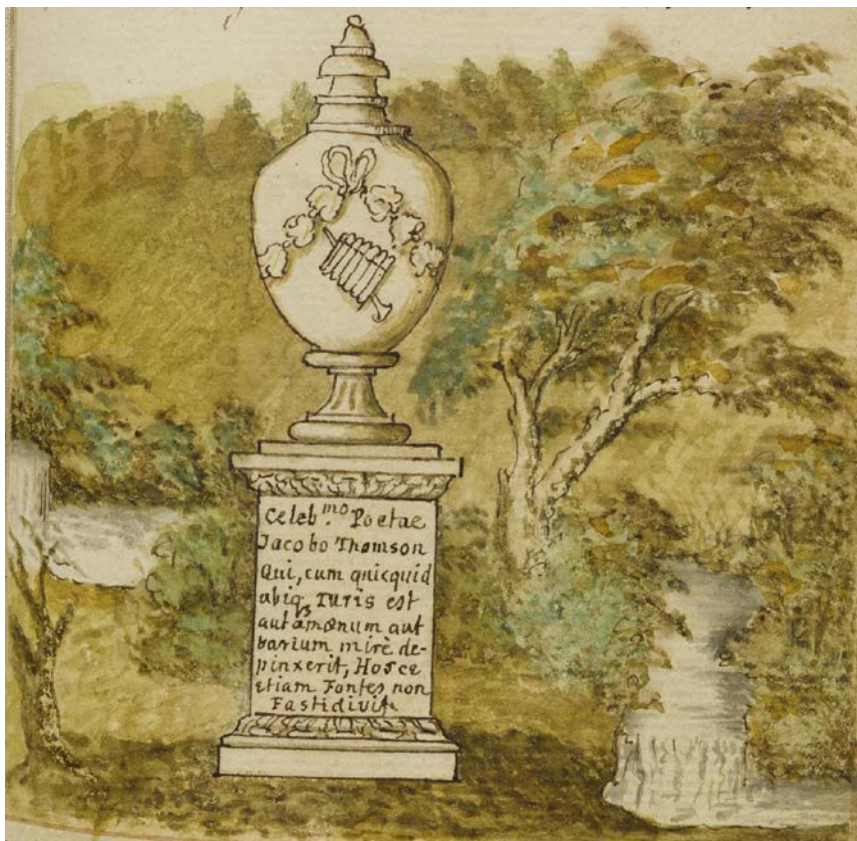 Celeb.ᵐᵒ Poetae
Jacobo Thomson
Qui, cum quicquid
ubiqꝫ ruris est
aut amœnum aut
varium mirè de-
pinxerit, Hosce
etiam Fontes non
Fastidivit